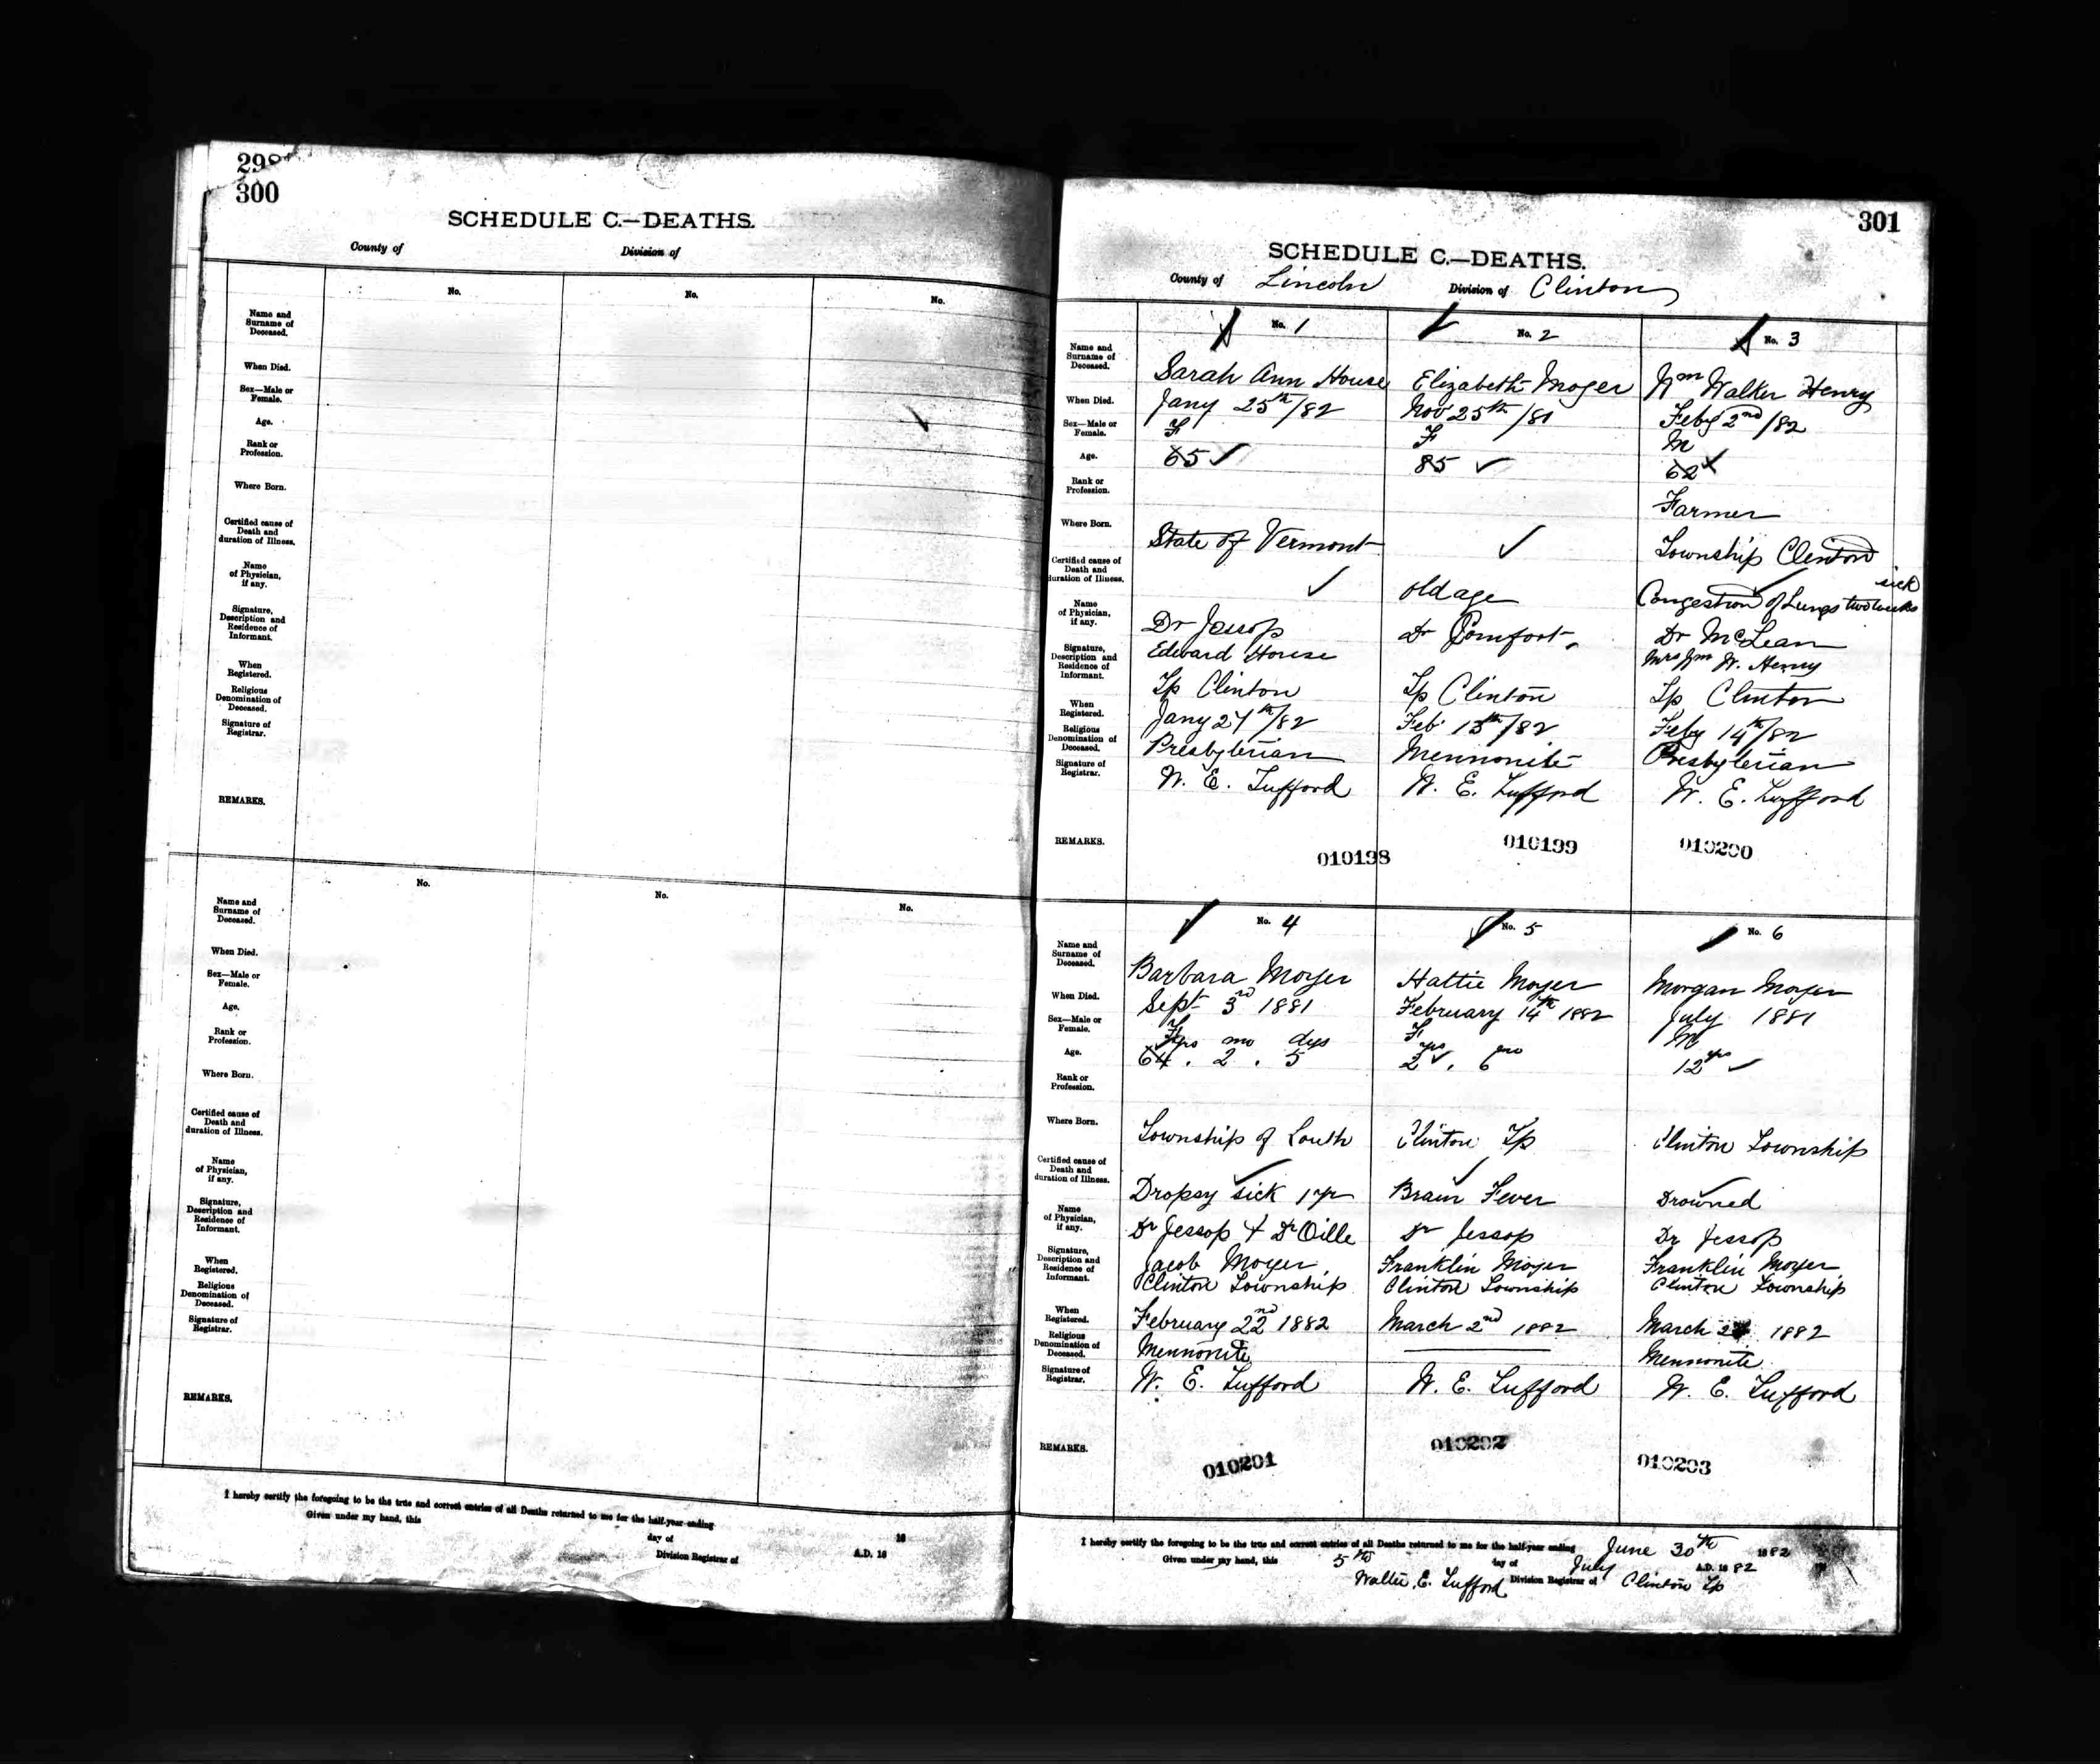 298
300
SCHEDULE C.—DEATHS.
County of Division of
No. No. No.
Name and
Surname of
Deceased.
When Died.
Sex—Male or
Female.
Age.
Rank or
Profession.
Where Born.
Certified cause of
Death and
duration of Illness.
Name
of Physician,
if any.
Signature,
Description and
Residence of
Informant.
When
Registered.
Religious
Denomination of
Deceased.
Signature of
Registrar.
REMARKS.
No. No. No.
Name and
Surname of
Deceased.
When Died.
Sex—Male or
Female.
Age.
Rank or
Profession.
Where Born.
Certified cause of
Death and
duration of Illness.
Name
of Physician,
if any.
Signature,
Description and
Residence of
Informant.
When
Registered.
Religious
Denomination of
Deceased.
Signature of
Registrar.
REMARKS.
I hereby certify the foregoing to be the true and correct entries of all Deaths returned to me for the half-year ending 18
Given under my hand, this day of A.D. 18
Division Registrar of
301
SCHEDULE C.—DEATHS.
County of Lincoln Division of Clinton
No. 1 No. 2 No. 3
Name and
Surname of
Deceased.
Sarah Ann House Elizabeth Moyer Wm Walker Henry
When Died. Jany 25th/82 Nov 25th/81 Feby 2nd/82
Sex—Male or
Female.
F F M
Age. 65 85 62
Rank or
Profession.
Farmer
Where Born. State of Vermont Township Clinton
Certified cause of
Death and
duration of Illness.
old age Congestion of Lungs sick two weeks
Name
of Physician,
if any.
Dr Jessop Dr Comfort Dr McLean
Signature,
Description and
Residence of
Informant.
Edward House Mrs Wm W. Henry
Tp Clinton Tp Clinton Tp Clinton
When
Registered.
Jany 27th/82 Feb 13th/82 Feby 14th/82
Religious
Denomination of
Deceased.
Presbyterian Mennonite Presbyterian
Signature of
Registrar.
W. E. Tufford W. E. Tufford W. E. Tufford
REMARKS.
010198 010199 010200
No. 4 No. 5 No. 6
Name and
Surname of
Deceased.
Barbara Moyer Hattie Moyer Morgan Moyer
When Died. Sept 3rd 1881 February 14th 1882 July 1881
Sex—Male or
Female.
F F M
Age. 64 yrs . 2 mo . 5 dys 2 yrs . 6 mo 12 yrs
Rank or
Profession.
Where Born. Township of Louth Clinton Tp Clinton Township
Certified cause of
Death and
duration of Illness.
Dropsy sick 1 yr Brain Fever Drowned
Name
of Physician,
if any.
Dr Jessop & Dr Oille Dr Jessop Dr Jessop
Signature,
Description and
Residence of
Informant.
Jacob Moyer Franklin Moyer Franklin Moyer
Clinton Township Clinton Township Clinton Township
When
Registered.
February 22nd 1882 March 2nd 1882 March 2 1882
Religious
Denomination of
Deceased.
Mennonite Mennonite
Signature of
Registrar.
W. E. Tufford W. E. Tufford W. E. Tufford
REMARKS.
010201 010202 010203
I hereby certify the foregoing to be the true and correct entries of all Deaths returned to me for the half-year ending June 30th 1882
Given under my hand, this 5th day of July A.D. 1882
Walter E. Tufford Division Registrar of Clinton Tp